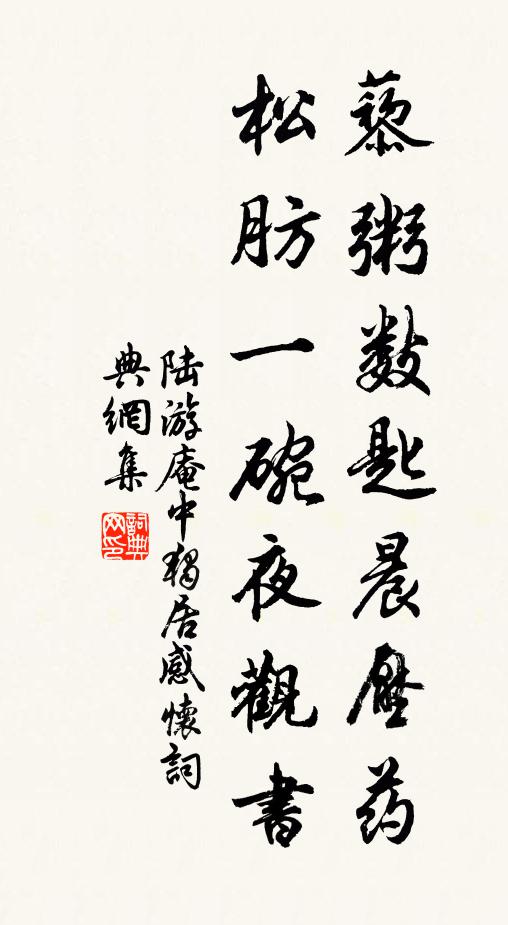 藜粥數匙晨壓药
松肪一碗夜觀書
陆游庵中獨居感懷詞
典網集
詞典网印